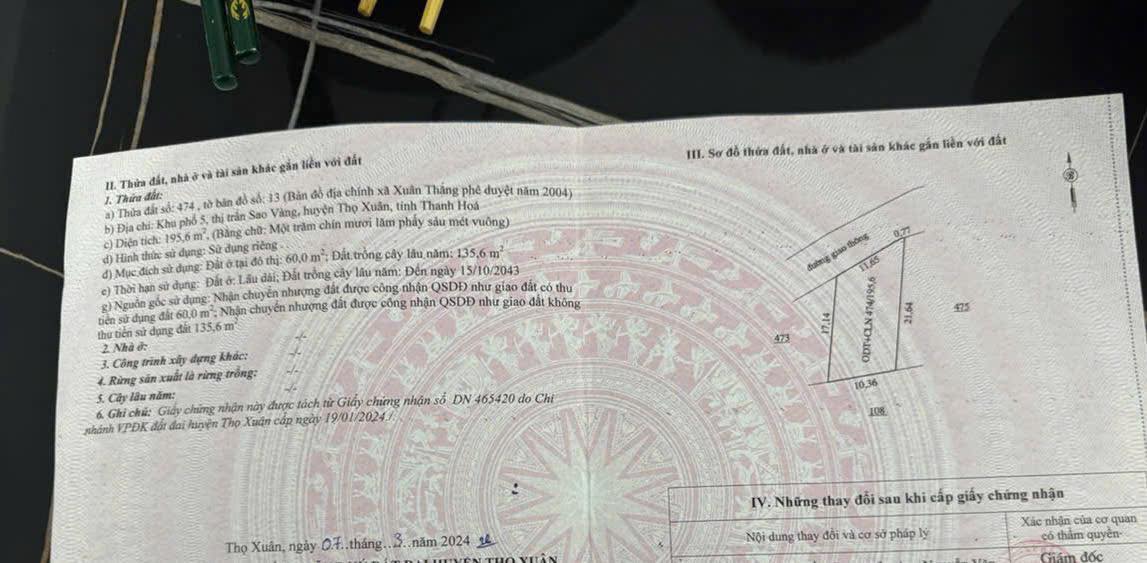 II. Thửa đất, nhà ở và tài sản khác gắn liền với đất
1. Thửa đất:
a) Thửa đất số: 474 , tờ bản đồ số: 13 (Bản đồ địa chính xã Xuân Thắng phê duyệt năm 2004)
b) Địa chỉ: Khu phố 5, thị trấn Sao Vàng, huyện Thọ Xuân, tỉnh Thanh Hoá
c) Diện tích: 195,6 m², (Bằng chữ: Một trăm chín mươi lăm phẩy sáu mét vuông)
d) Hình thức sử dụng: Sử dụng riêng
đ) Mục đích sử dụng: Đất ở tại đô thị: 60,0 m²; Đất trồng cây lâu năm: 135,6 m²
e) Thời hạn sử dụng: Đất ở: Lâu dài; Đất trồng cây lâu năm: Đến ngày 15/10/2043
g) Nguồn gốc sử dụng: Nhận chuyển nhượng đất được công nhận QSDĐ như giao đất có thu
tiền sử dụng đất 60,0 m²; Nhận chuyển nhượng đất được công nhận QSDĐ như giao đất không
thu tiền sử dụng đất 135,6 m²
2. Nhà ở: -/-
3. Công trình xây dựng khác: -/-
4. Rừng sản xuất là rừng trồng: -/-
5. Cây lâu năm: -/-
6. Ghi chú: Giấy chứng nhận này được tách từ Giấy chứng nhận số DN 465420 do Chi
nhánh VPĐK đất đai huyện Thọ Xuân cấp ngày 19/01/2024./.
Thọ Xuân, ngày 07 tháng 3 năm 2024
III. Sơ đồ thửa đất, nhà ở và tài sản khác gắn liền với đất
đường giao thông
0,77
11,65
17,14
ODT+CLN 474/195,6
21,64
473
475
10,36
108
IV. Những thay đổi sau khi cấp giấy chứng nhận
Nội dung thay đổi và cơ sở pháp lý
Xác nhận của cơ quan
có thẩm quyền
Giám đốc